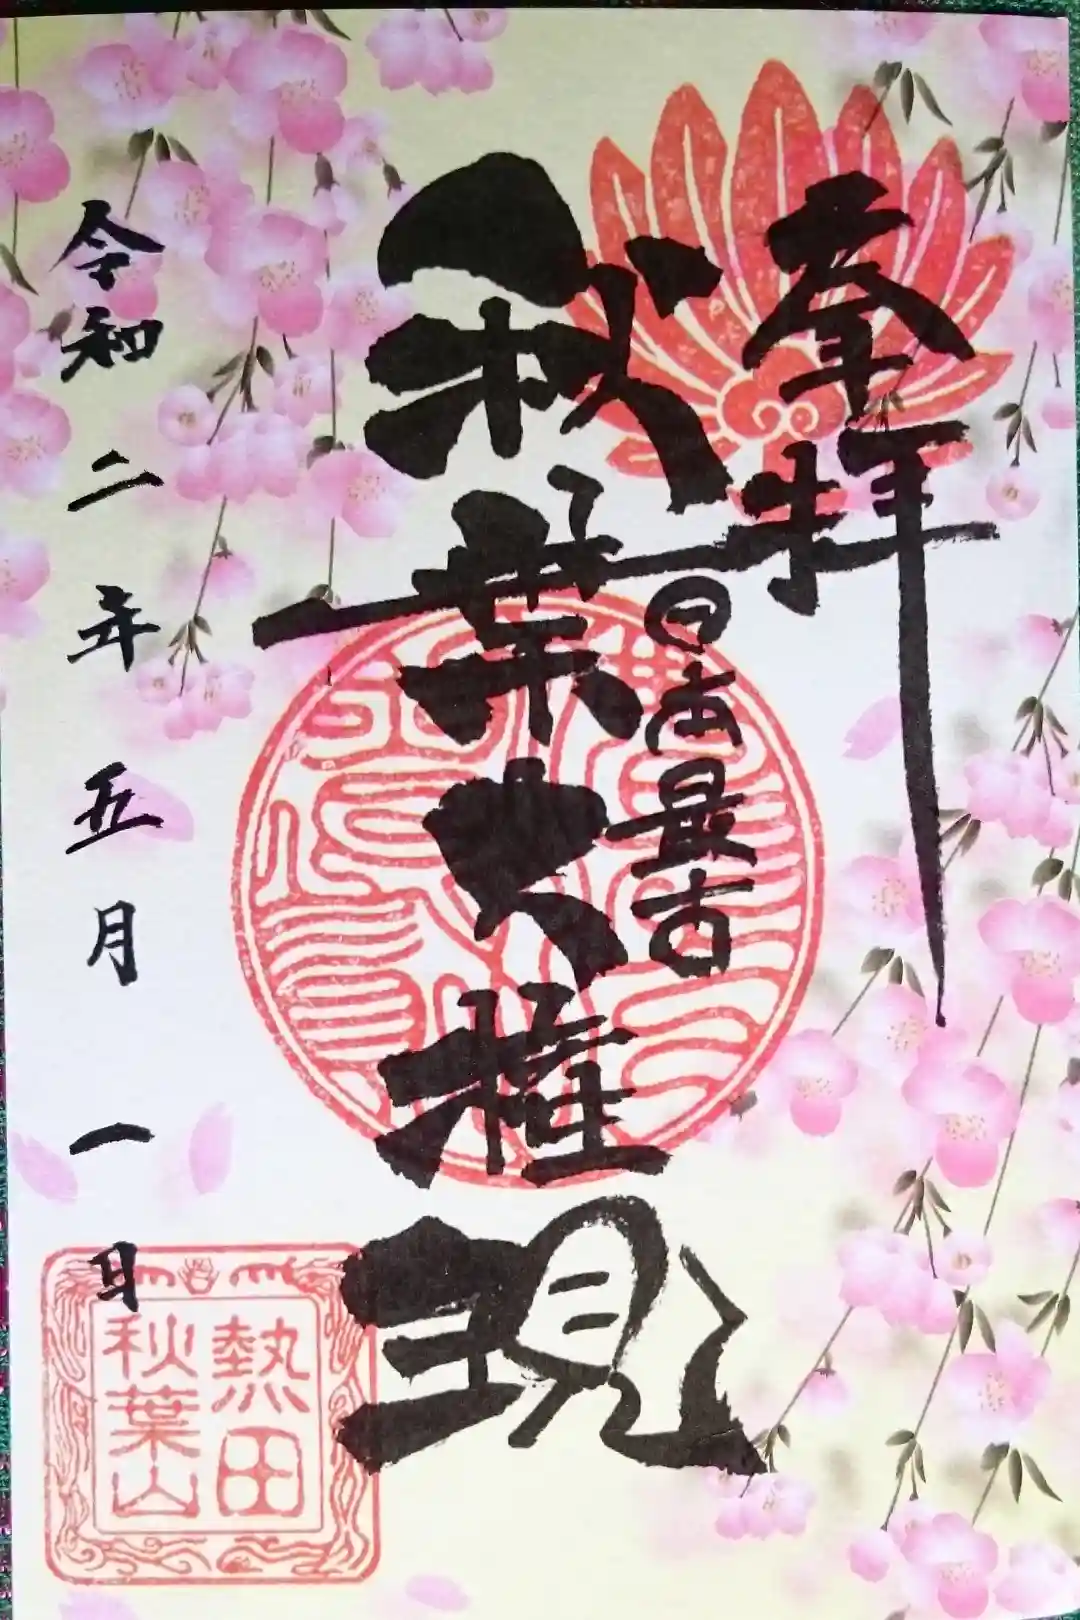 奉拝
日本最古
秋葉大権現
令和二年五月一日
熱田
秋葉山